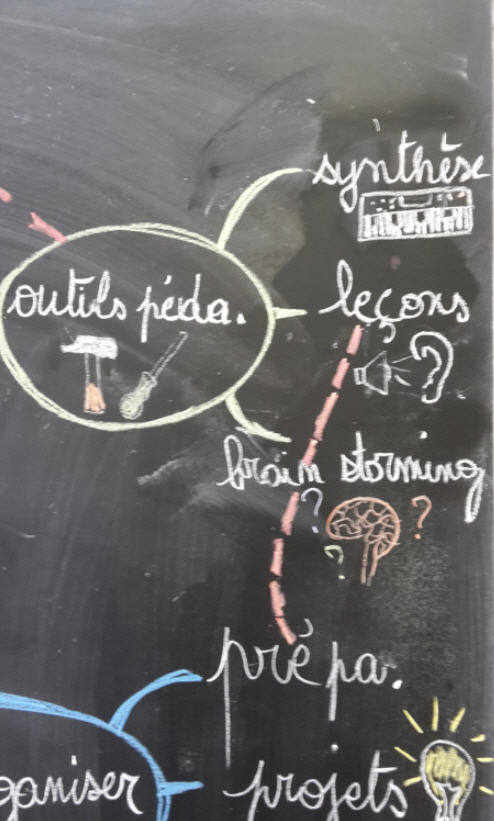 synthèse
outils péda.
leçons
brain storming
? ?
?
prépa.
ganiser
projets